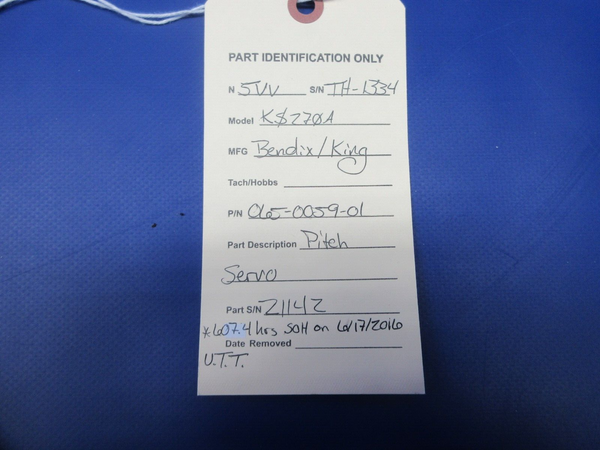 PART IDENTIFICATION ONLY
N 5VV S/N TH-1334
Model KS270A
MFG Bendix/King
Tach/Hobbs
P/N 065-0059-01
Part Description Pitch
Servo
Part S/N 21142
*607.4 hrs SOH on 6/17/2016
Date Removed
U.T.T.